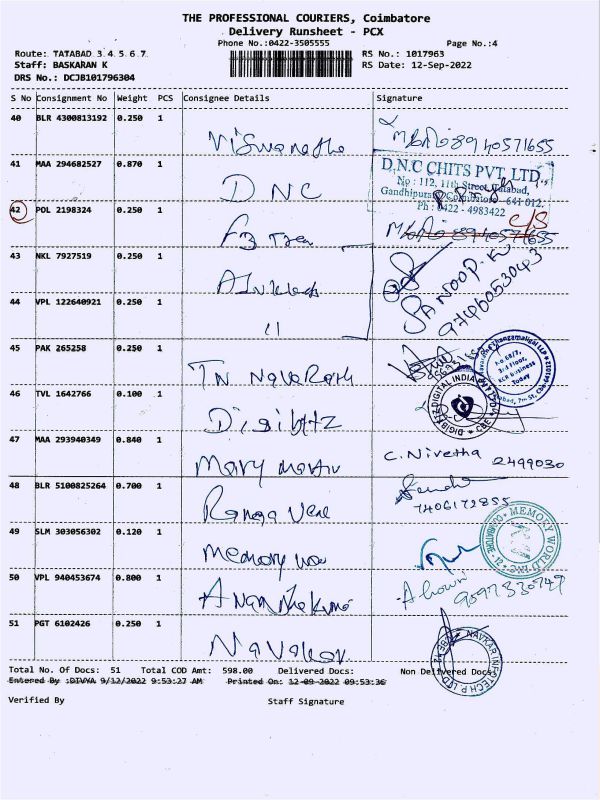 THE PROFESSIONAL COURIERS, Coimbatore
Delivery Runsheet - PCX
Phone No.:0422-3505555
Page No.:4
Route: TATABAD 3.4.5.6.7.
RS No.: 1017963
Staff: BASKARAN K
RS Date: 12-Sep-2022
DRS No.: DCJB101796304
S No Consignment No Weight PCS Consignee Details Signature
40 BLR 4300813192 0.250 1
8940571655
41 MAA 294682527 0.870 1 DNC
D.N.C CHITS PVT. LTD.,
No : 112, 11th Street, Tatabad,
Gandhipuram, Coimbatore - 641 012.
Ph : 0422 - 4983422
42 POL 2198324 0.250 1
C/S
8940571655
43 NKL 7927519 0.250 1
ANOOP.K
9746053043
44 VPL 122640921 0.250 1 11
45 PAK 265258 0.250 1 TN
3rd Floor,
RCR Business
Today
46 TVL 1642766 0.100 1 Digibitz
DIGITAL INDIA
CBE
47 MAA 293940349 0.840 1 Mary Martin
C. Nivetha 2499030
48 BLR 5100825264 0.700 1 Ranga
7406172855
49 SLM 303056302 0.120 1 Memory
MEMORY WORLD INC
COIMBATORE - 12
50 VPL 940453674 0.800 1
9597330749
51 PGT 6102426 0.250 1
NAVKAR INFOTECH P LTD
Total No. Of Docs: 51 Total COD Amt: 598.00 Delivered Docs: Non Delivered Docs:
Entered By :DIVYA 9/12/2022 9:53:27 AM Printed On: 12-09-2022 09:53:36
Verified By Staff Signature